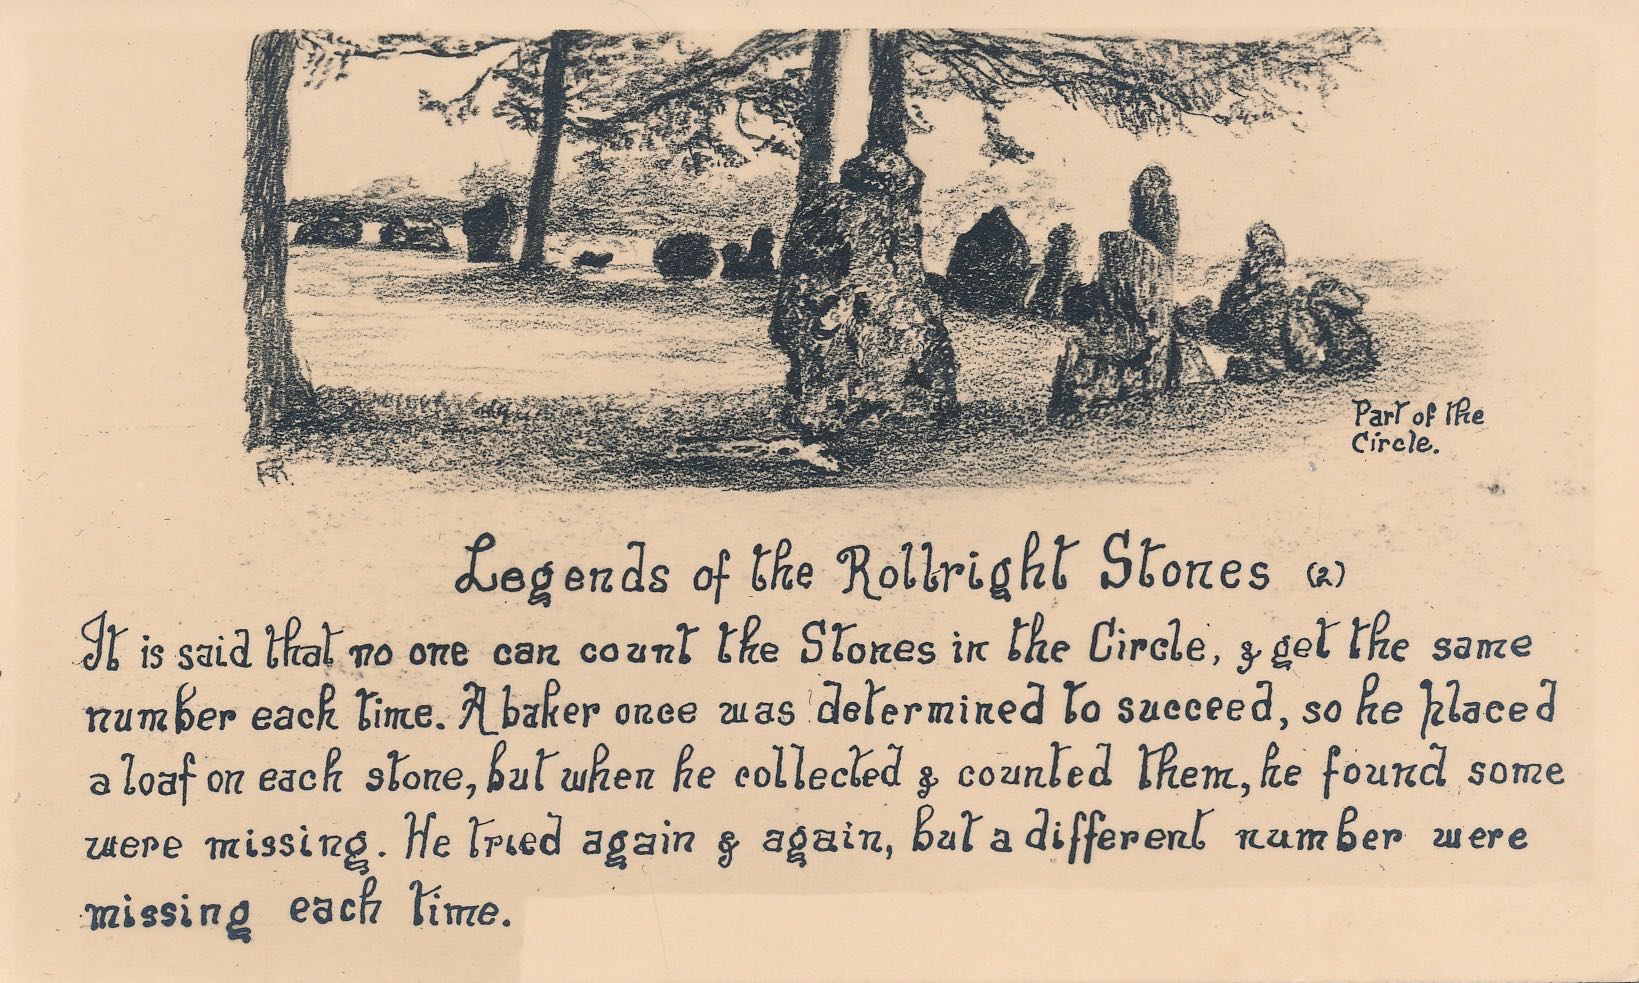 Part of the
Circle.
FR.
Legends of the Rollright Stones (2)
It is said that no one can count the Stones in the Circle, & get the same
number each time. A baker once was determined to succeed, so he placed
a loaf on each stone, but when he collected & counted them, he found some
were missing. He tried again & again, but a different number were
missing each time.